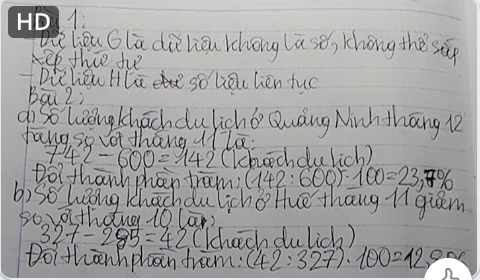 HD
Bài 1:
- Dữ liệu G là dữ liệu không là số, không thể sắp
xếp thứ tự
- Dữ liệu H là số liệu liên tục
Bài 2:
a) Số lượng khách du lịch ở Quảng Ninh tháng 12
tăng so với tháng 11 là:
742 - 600 = 142 (khách du lịch)
Đổi thành phần trăm: (142 : 600) . 100 = 23,7%
b) Số lượng khách du lịch ở Huế tháng 11 giảm
so với tháng 10 là:
327 - 285 = 42 (khách du lịch)
Đổi thành phần trăm: (42 : 327) . 100 = 12,8%